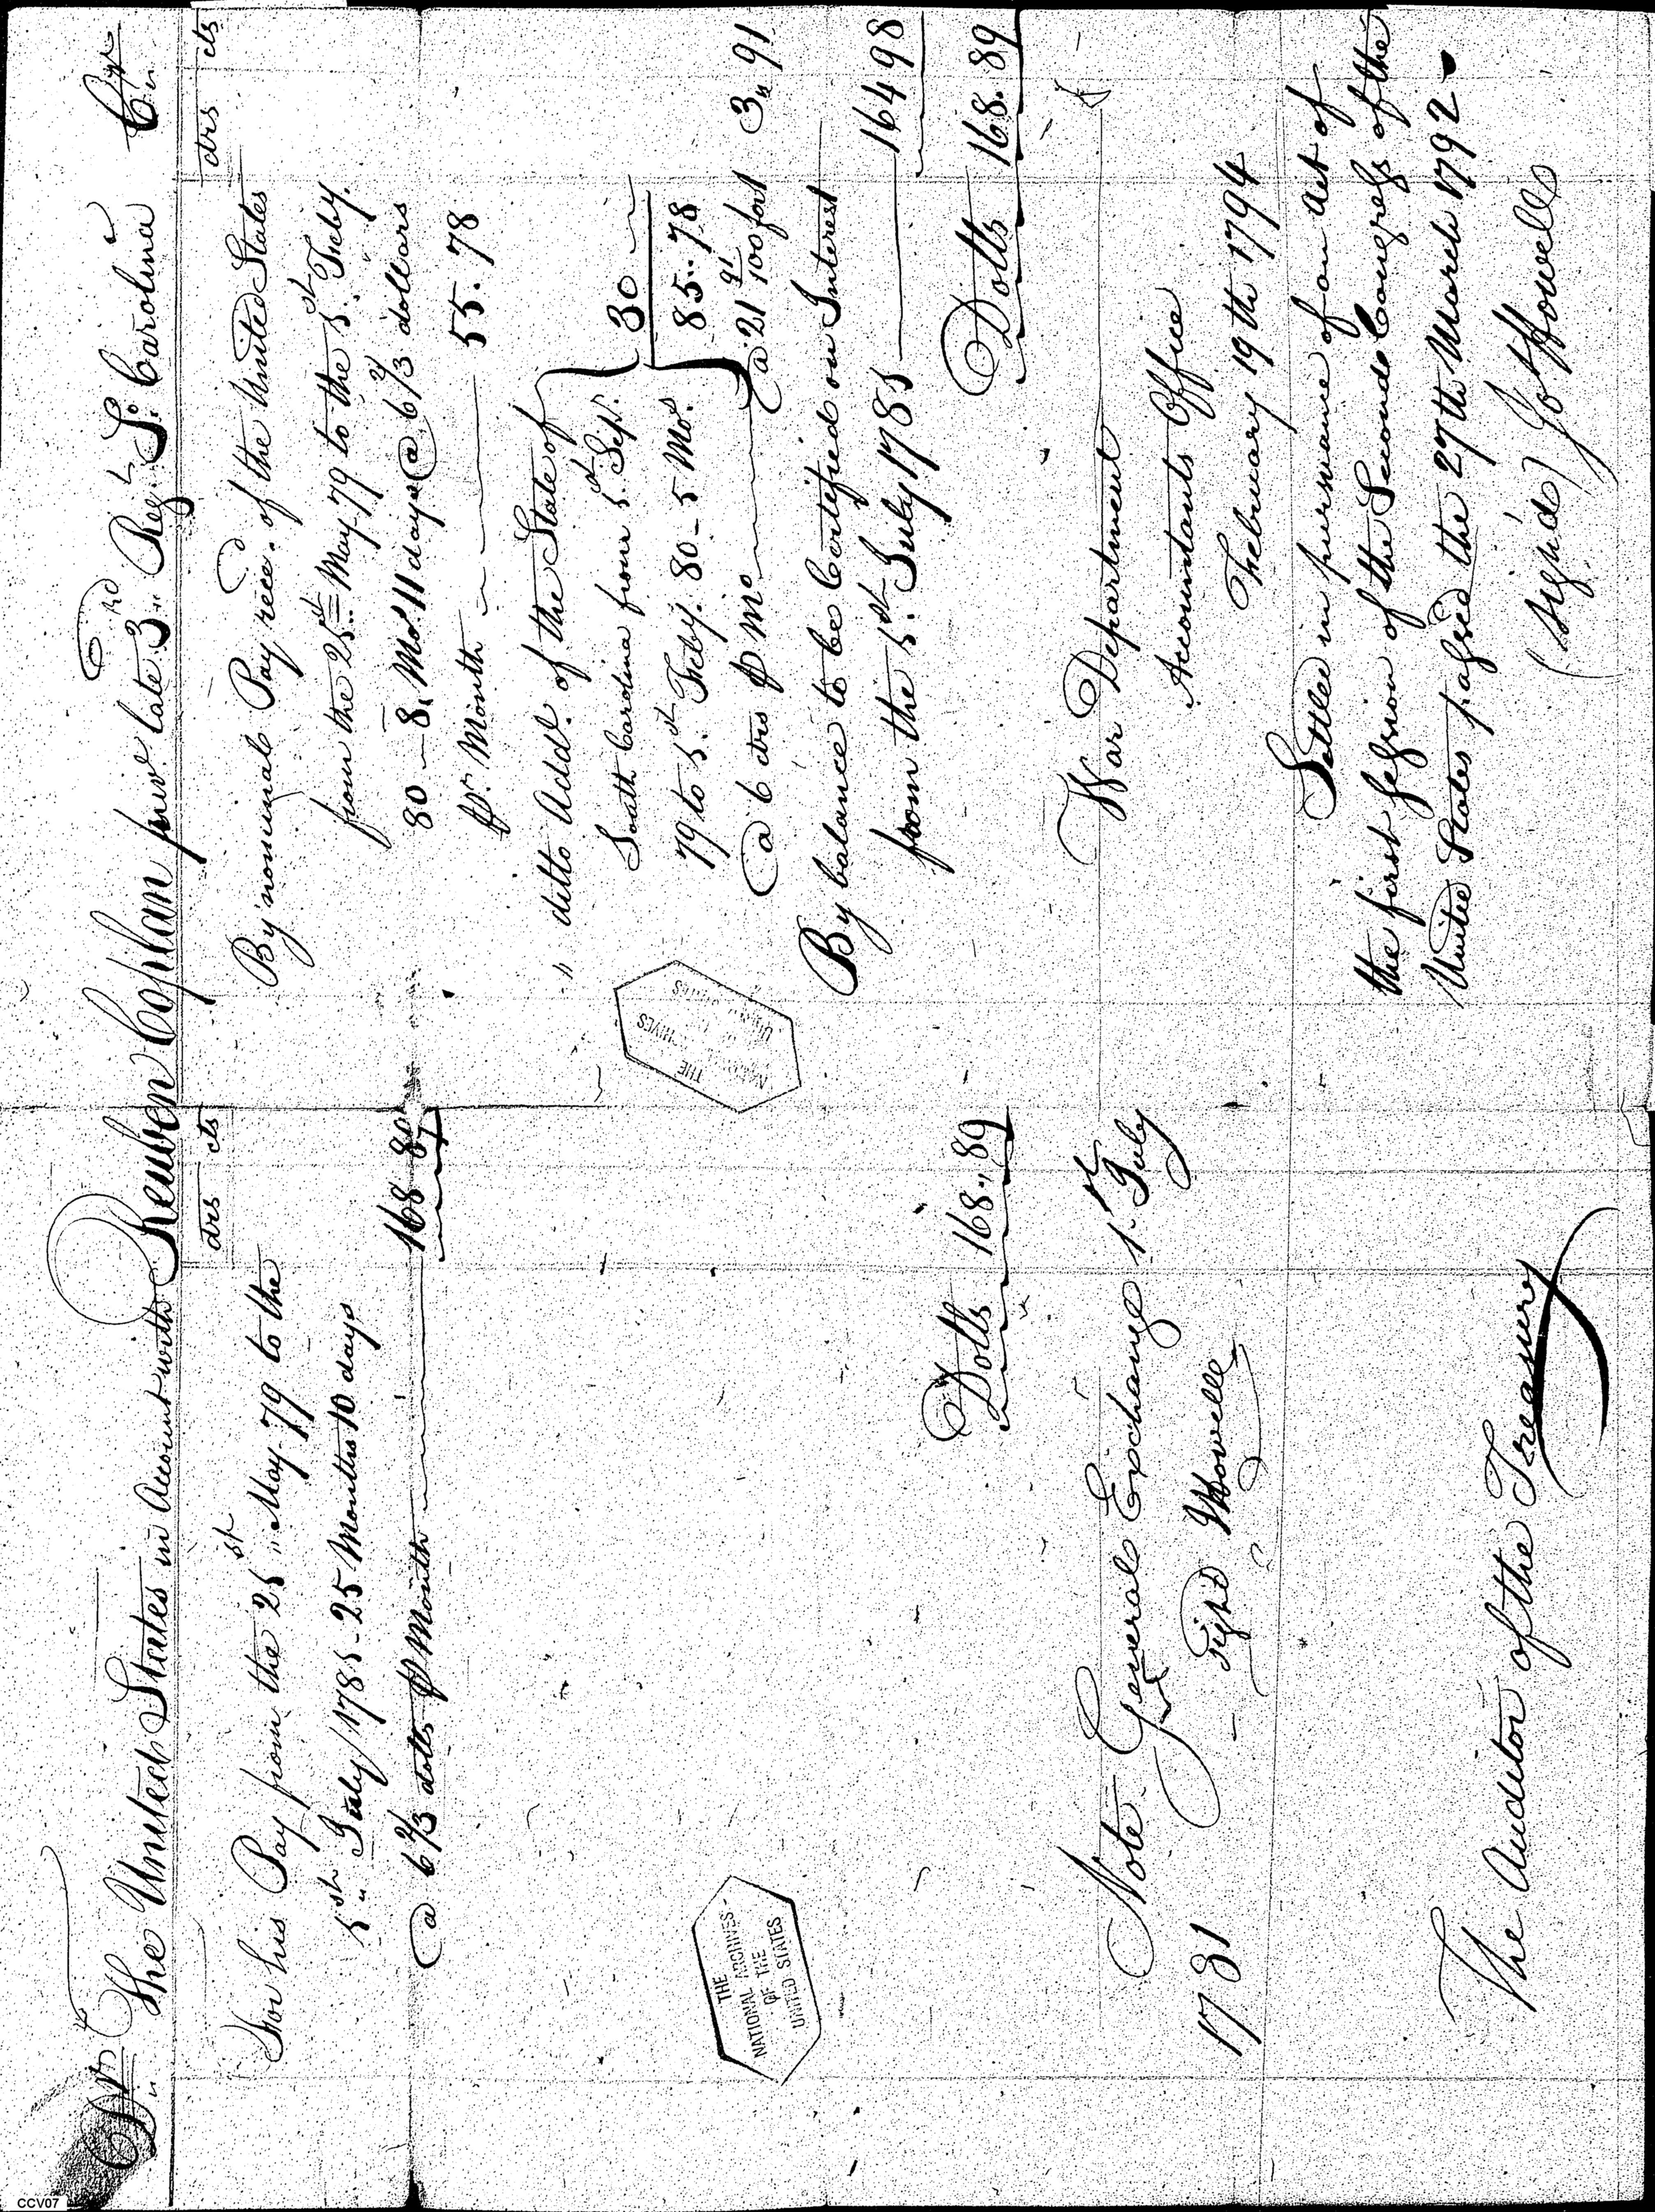 Dr. The United States in Account with Reuben Cophan priv. late 3rd Regt. So. Carolina Cr.
drs cts
For his Pay from the 21st May 79 to the
1st July 1781 - 25 Months 10 days
@ 6 2/3 dolls ⅌ Month 168 89
Dolls 168.89
Note General Exchange 1st July
1781
Sign'd J Howell
The Auditor of the Treasury
drs cts
By nominal Pay recd. of the United States
from the 21st May 79 to the 1st Feby.
80 - 8 Mos 11 days @ 6 2/3 dollars
pr. Month 55.78
" ditto Addl. of the State of
South Carolina from 1st Sepr.
79 to 1st Feby. 80 - 5 Mos.
@ 6 drs ⅌ Mo 30
85.78
@ 21 91/100 for 1 3 91
By balance to be Certified on Interest
from the 1st July 1781 164 98
Dolls 168.89
War Department
Accountants Office
February 19th 1794
Settled in pursuance of an Act of
the first session of the Second Congress of the
United States passed the 27th March 1792
(sign'd) Jo Howell
THE
NATIONAL ARCHIVES
OF THE
UNITED STATES
THE
NATIONAL ARCHIVES
OF THE
UNITED STATES
CCV07